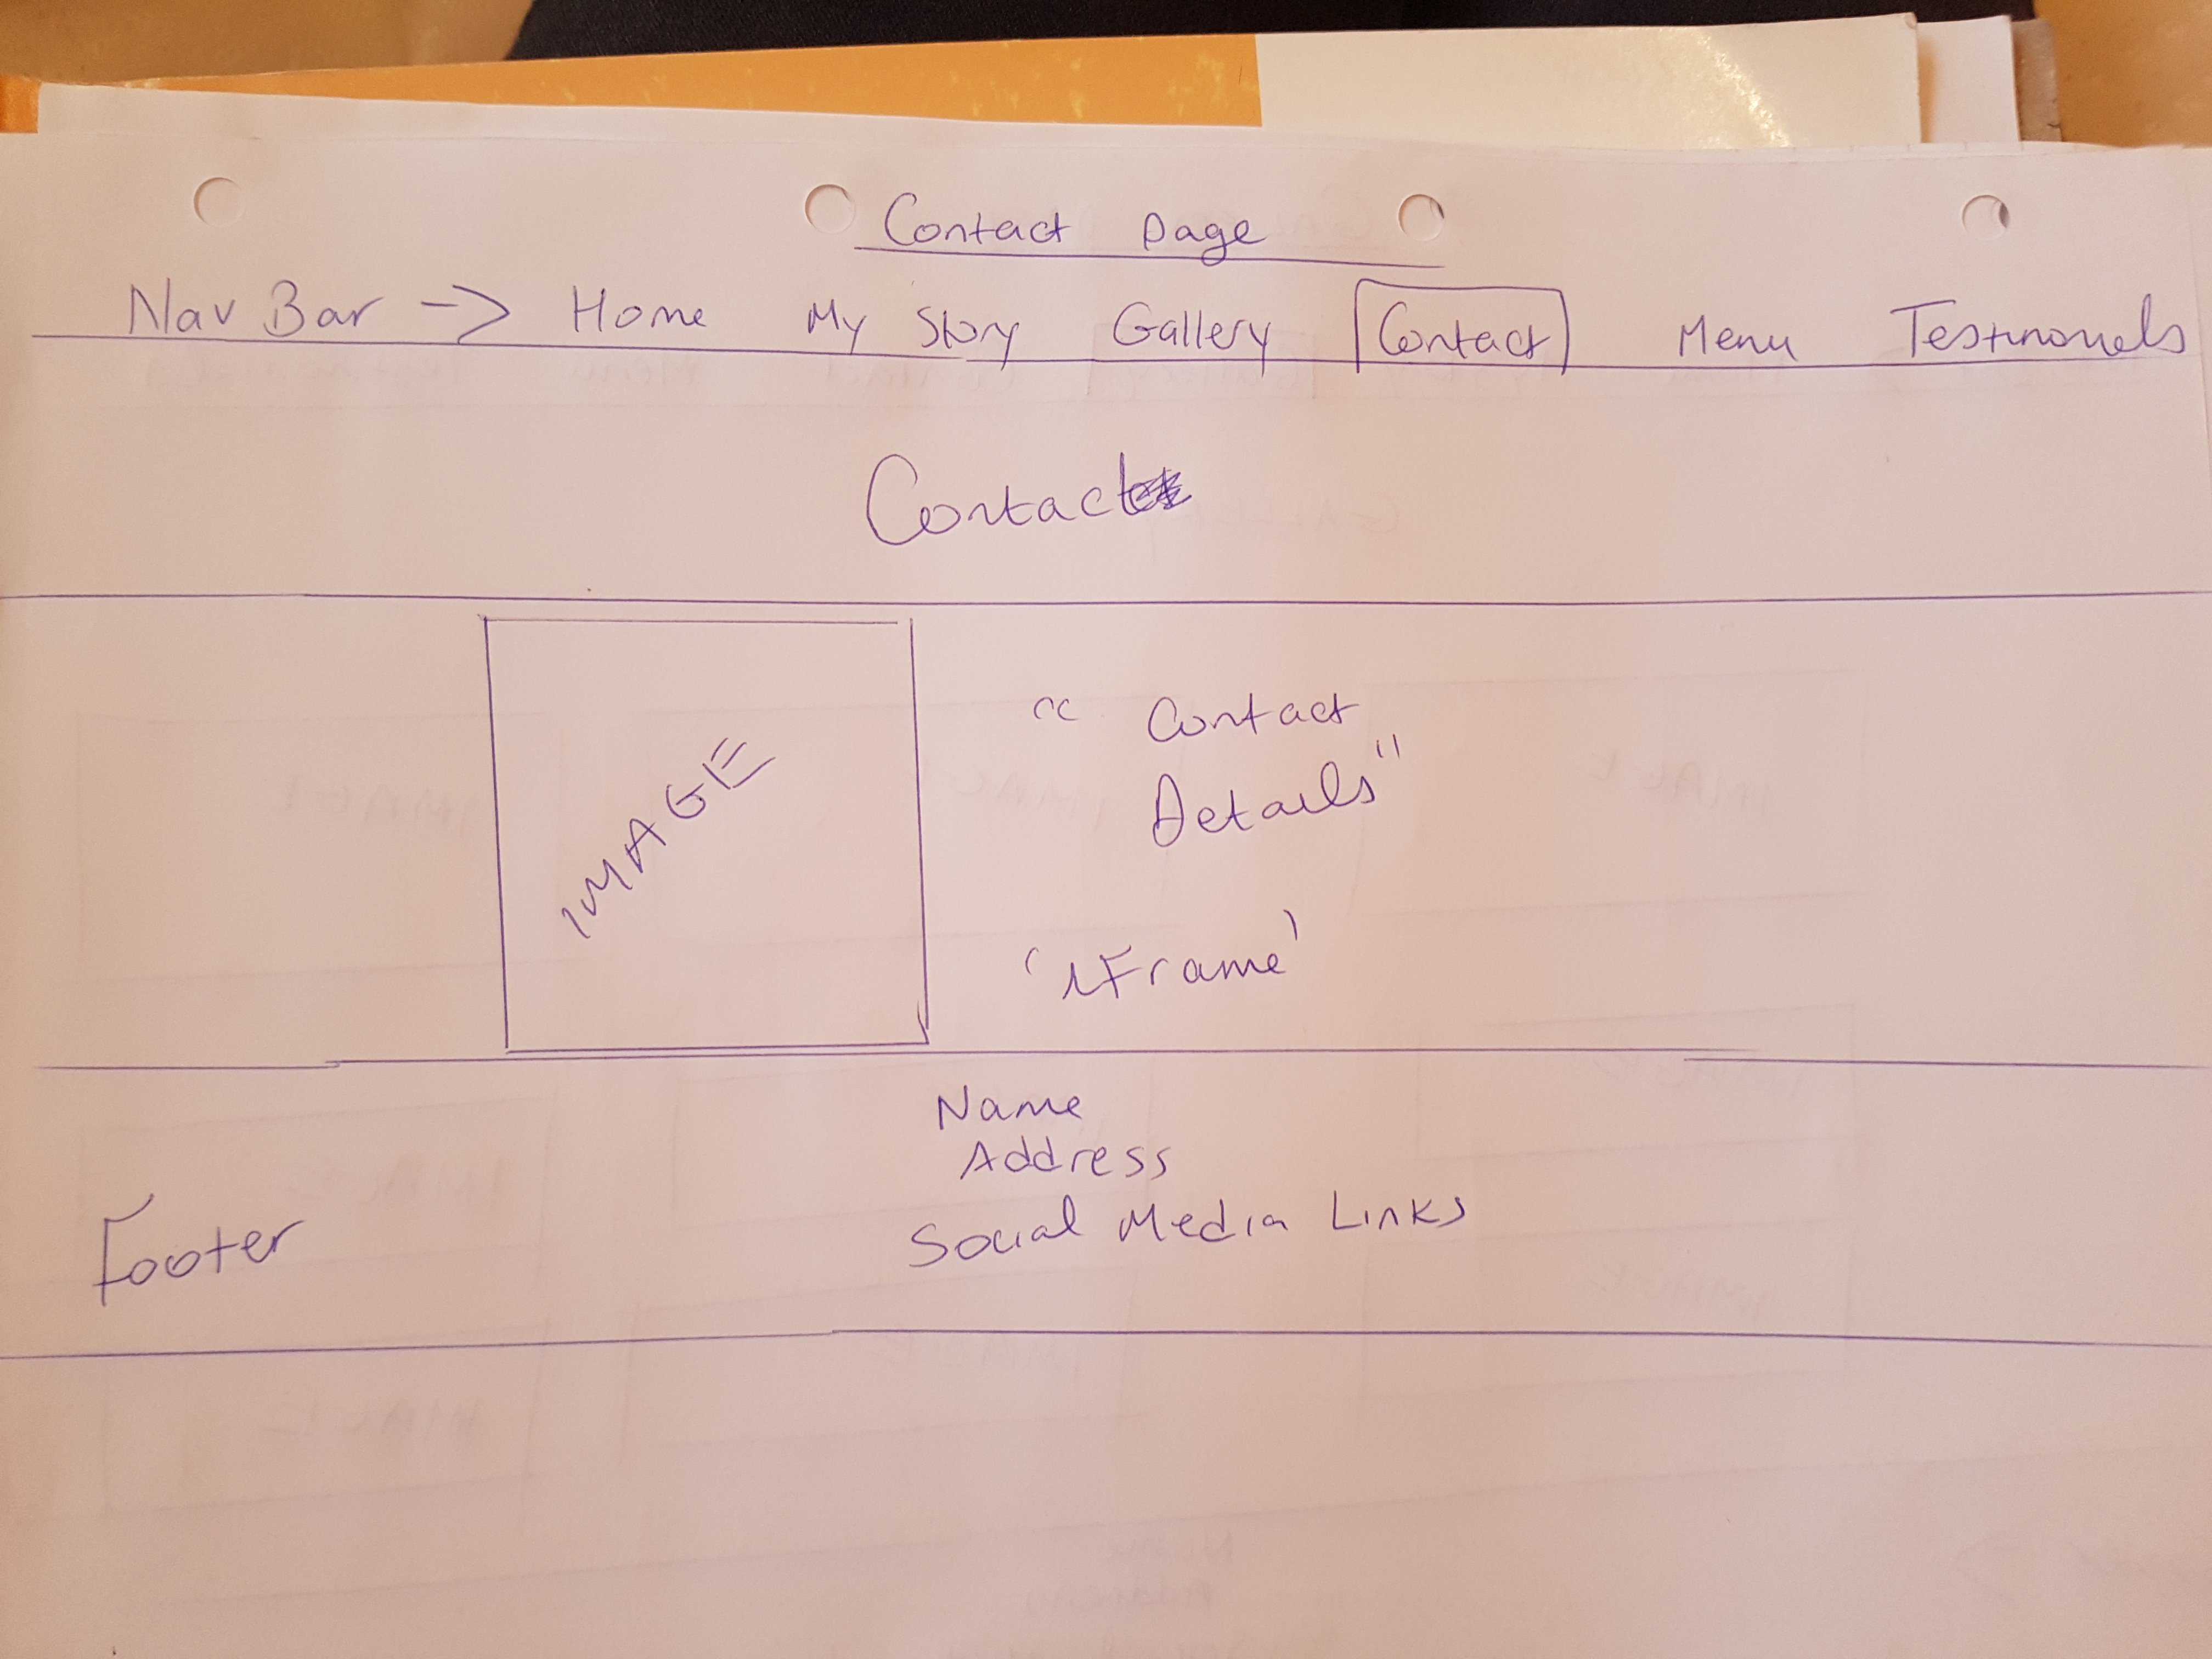 Contact page
Nav Bar -> Home My Story Gallery Contact Menu Testimonels
Contact
IMAGE
"Contact
Details"
Name
Address
Social Media Links
Footer